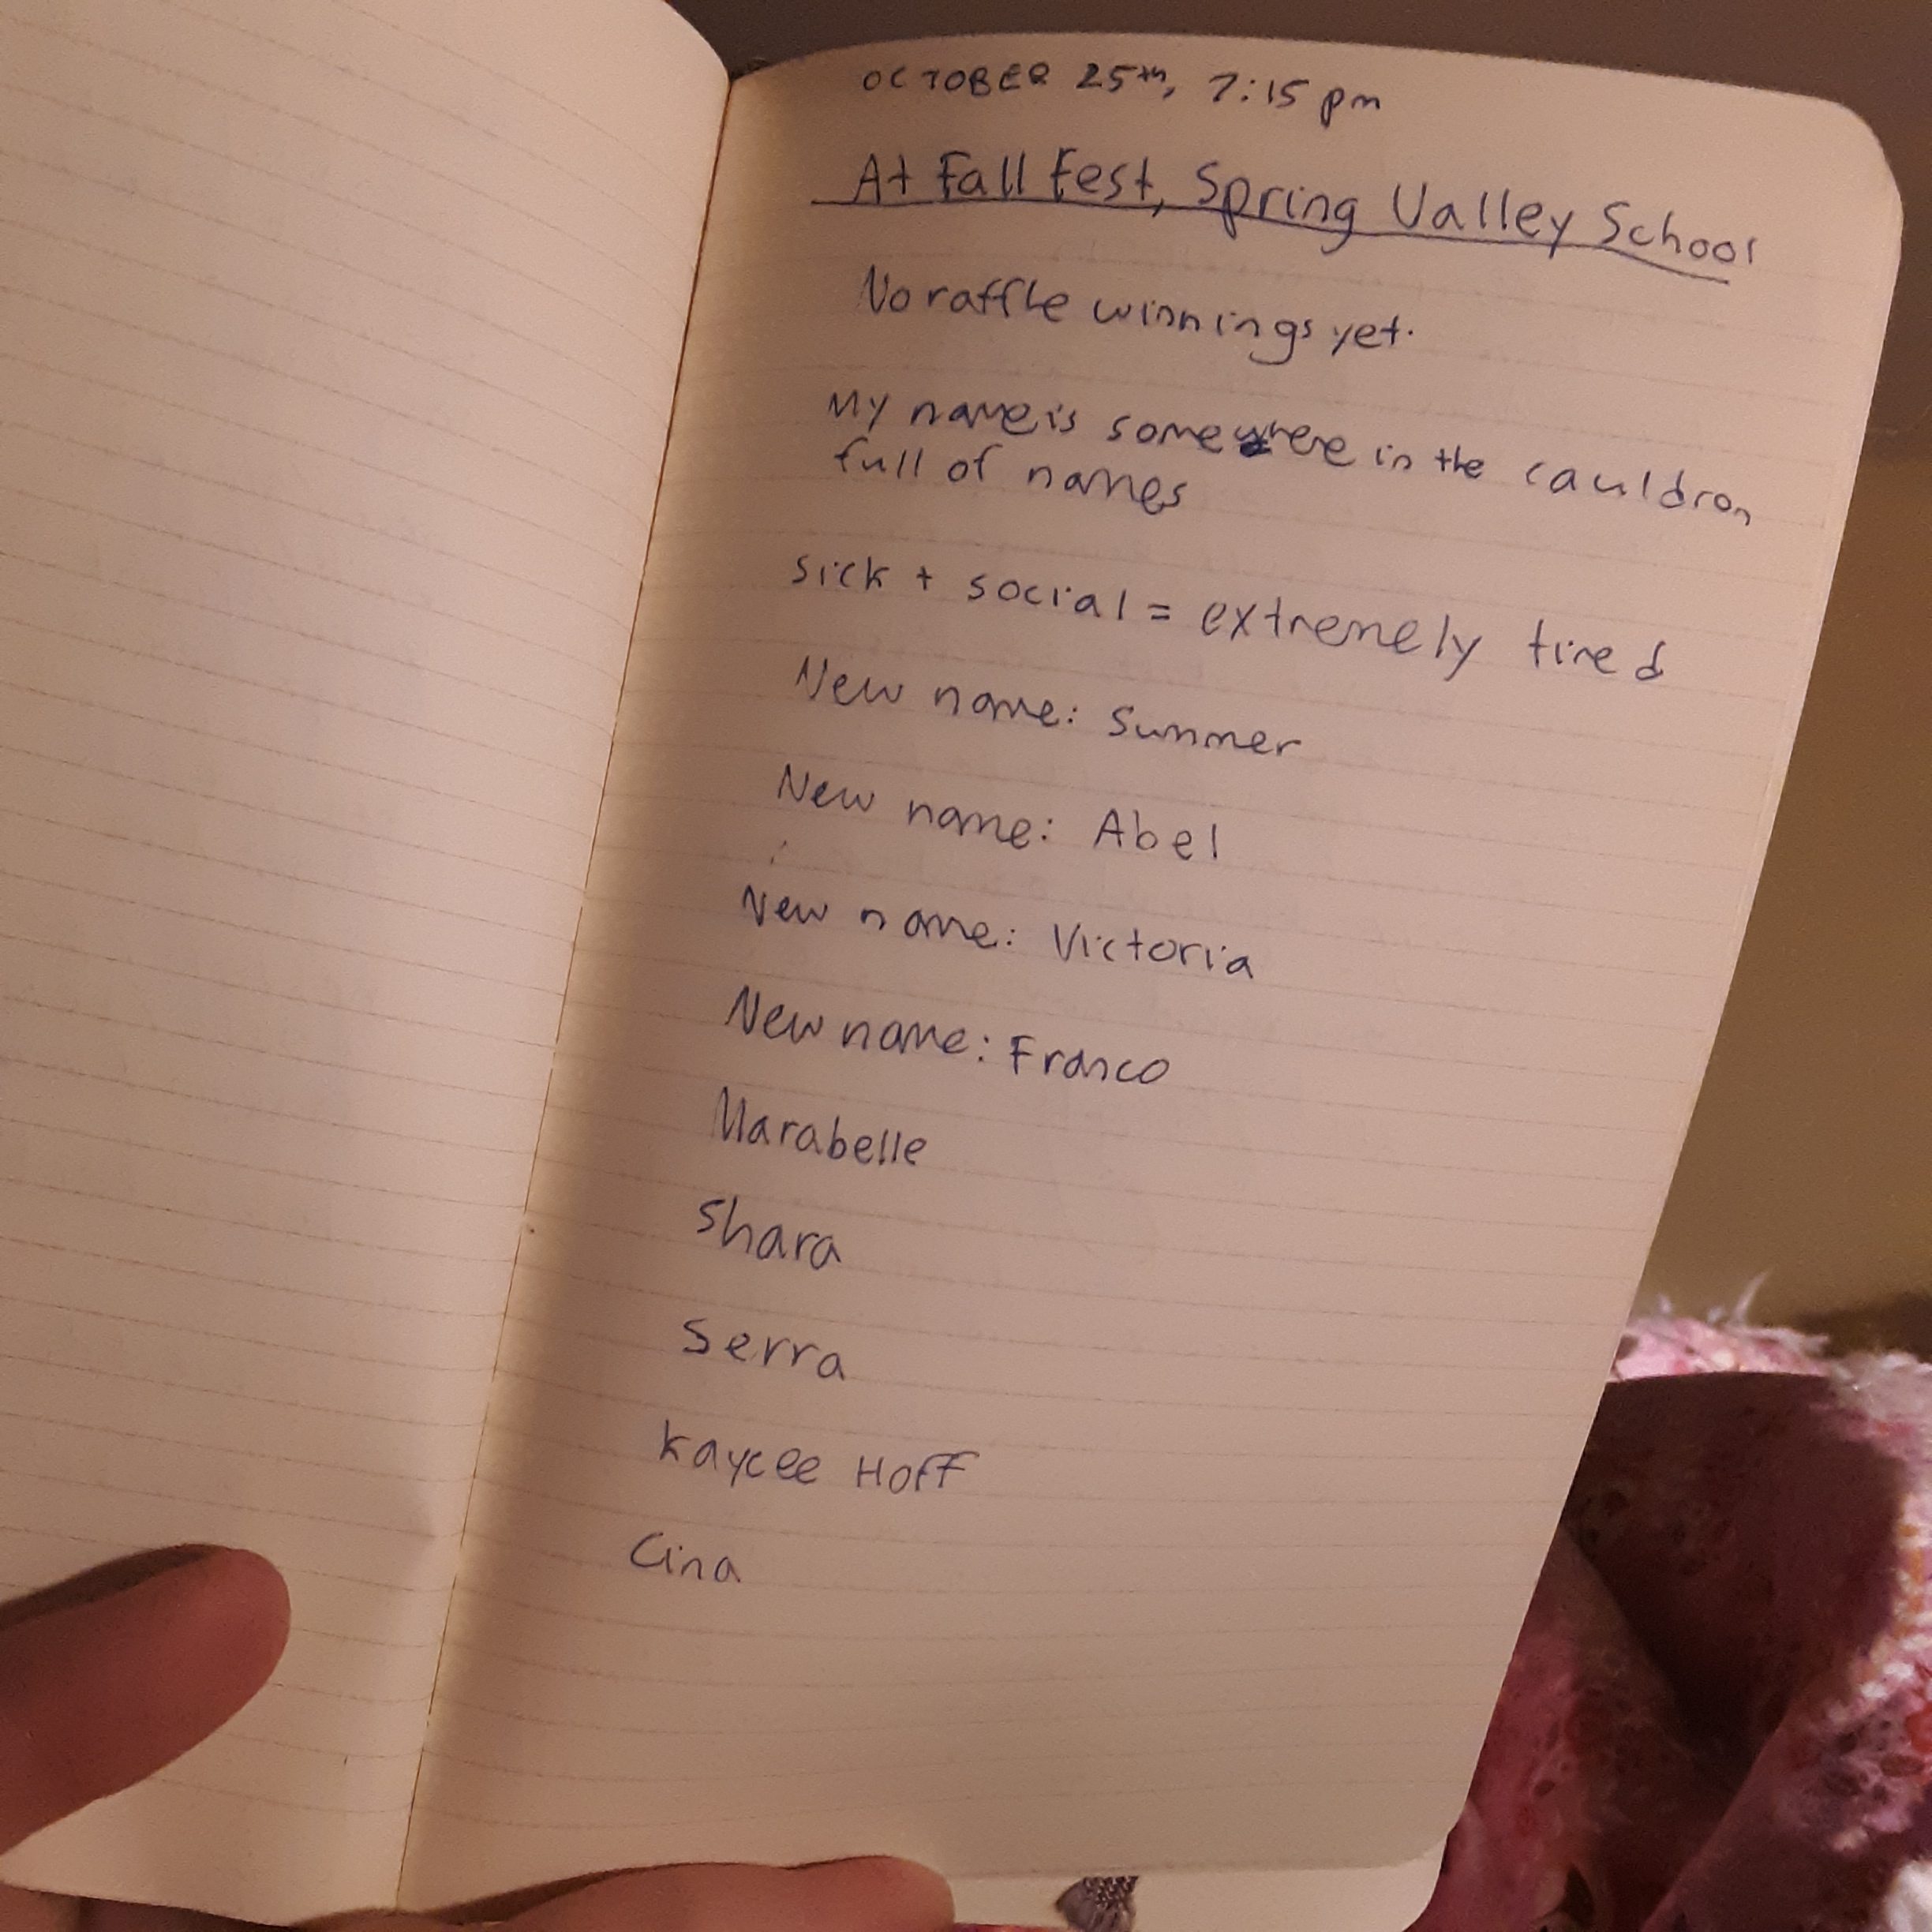 OCTOBER 25th, 7:15 pm
At Fall Fest, Spring Valley School
No raffle winnings yet.
My name is somewhere in the cauldron
full of names
sick + social = extremely tired
New name: Summer
New name: Abel
New name: Victoria
New name: Franco
Marabelle
Shara
Serra
Kaycee Hoff
Cina